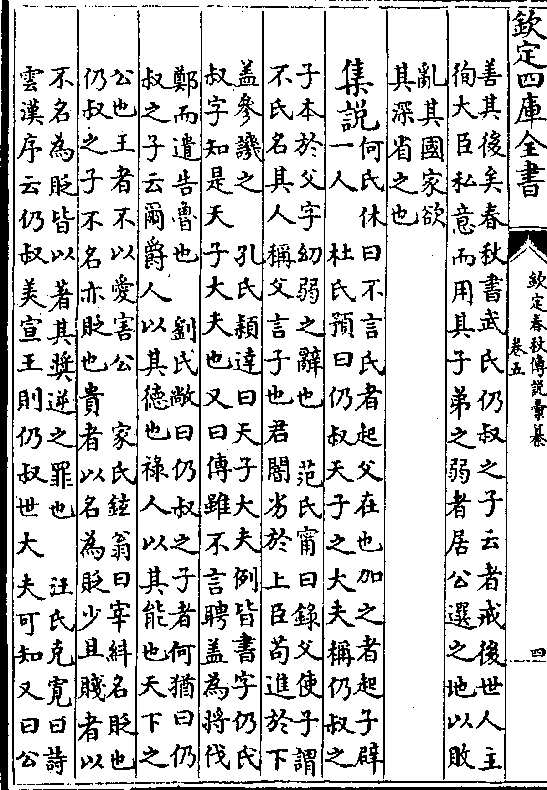 欽定四庫全書
善其後矣春秋書武氏仍叔之子云者戒後世人主
徇大臣私意而用其子弟之弱者居公選之地以敗
亂其國家欲
其深省之也
集說
何氏休曰不言氏者起父在也加之者起子辟
一人 杜氏預曰仍叔天子之大夫稱仍叔之
子本於父字幼弱之辭也 范氏甯曰錄父使子謂
不氏名其人稱父言子也君闇劣於上臣苟進於下
盖參譏之 孔氏穎達曰天子大夫例皆書字仍氏
叔字知是天子大夫也又曰傳雖不言聘盖為將伐
鄭而遣告魯也 劉氏敞曰仍叔之子者何猶曰仍
叔之子云爾爵人以其德也祿人以其能也天下之
公也王者不以愛害公 家氏鉉翁曰宰糾名貶也
仍叔之子不名亦貶也貴者以名為貶少且賤者以
不名為貶皆以著其奨逆之罪也 汪氏克寬曰詩
雲漢序云仍叔美宣王則仍叔世大夫可知又曰公
欽定春秋傳說彙纂
卷五
四